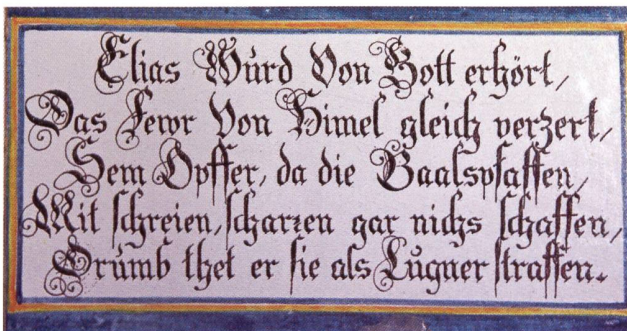 Elias Würd Von Gott erhört,
Das Fewr Von Himel gleich verzert,
Sein Opffer, da die Baalspfaffen,
Mit schreien, scharren gar nichs schaffen,
Drumb thet er sie als Lügner straffen.